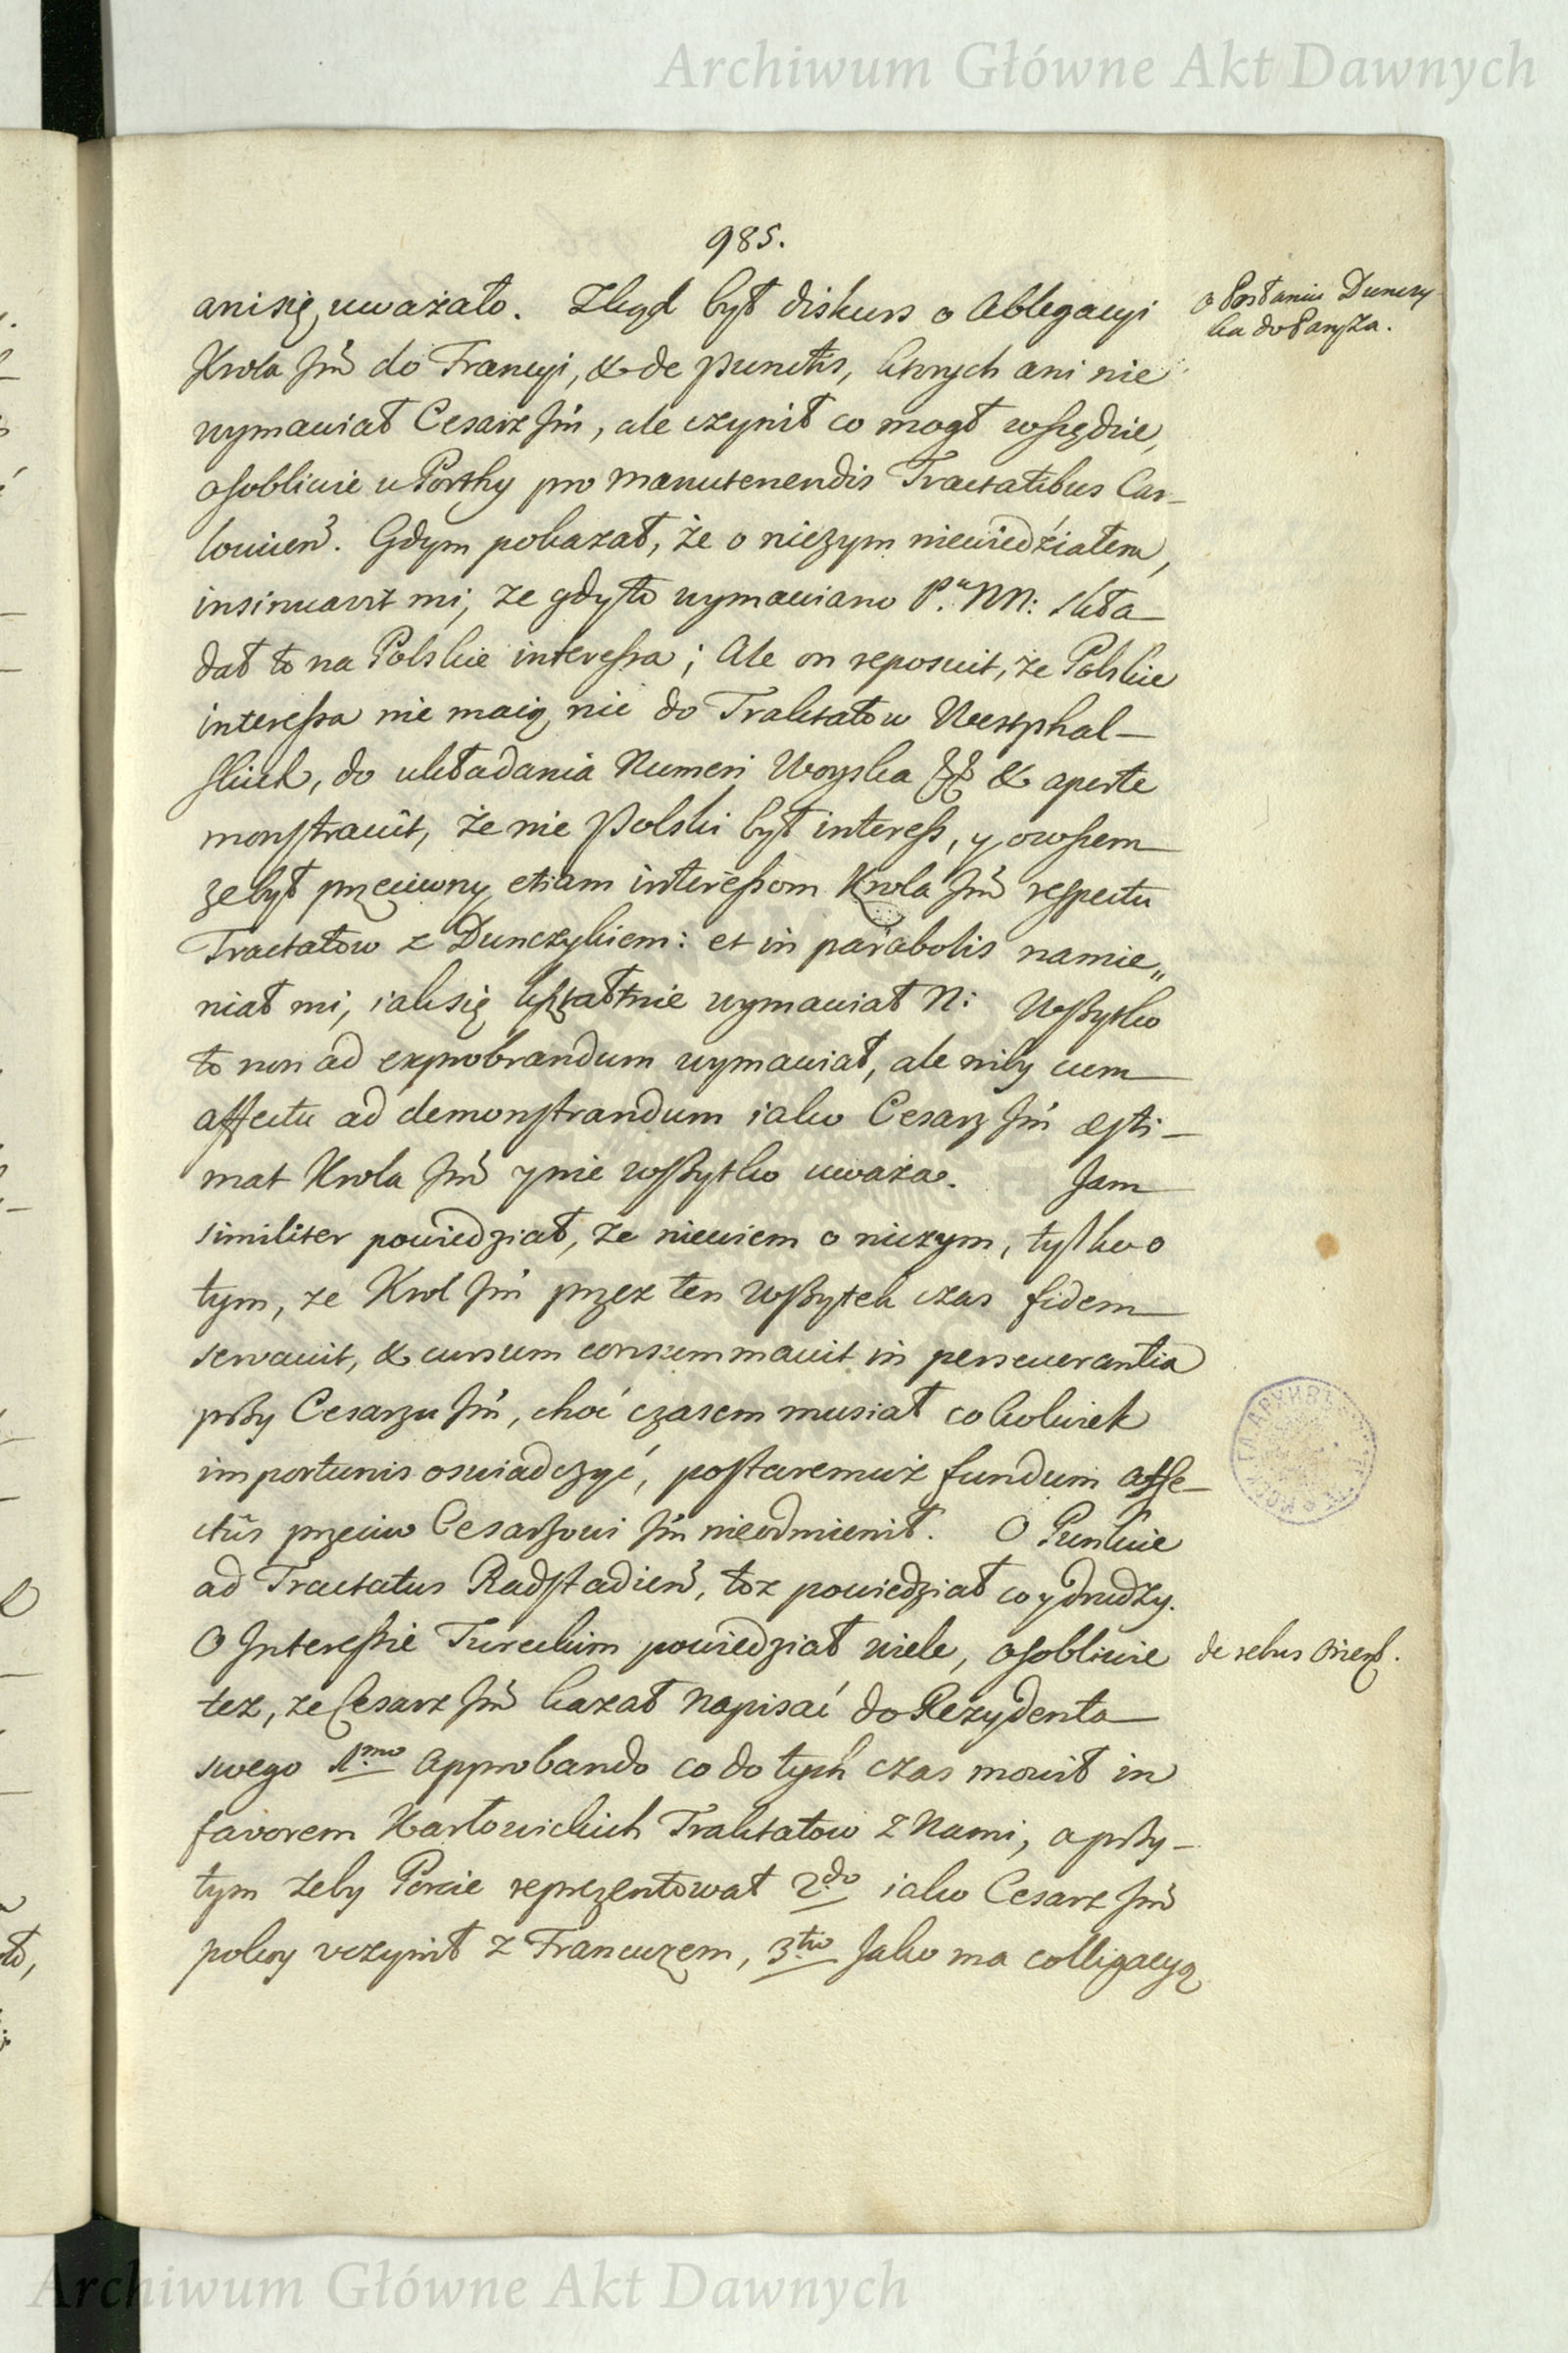 Archiwum Główne Akt Dawnych
985.
ani się uważało. Zkąd był diskurs o Ablegacyi
o Posłaniu Dunczy
ka do Paryża.
Krola Jm̃ do Francyi, & de punctis, ktorych ani nie
wymawiał Cesarz Jm̃, ale czynił co mogł wszędzie,
osobliwie u Porthy pro manutenendis Tractatibus Car-
lowien̄. Gdym pokazał, że o niczym niewiedziałem,
insinuavit mi, ze gdy to wymawiano P.ᵘ NN: skła-
dał to na Polskie interessa; Ale on reposuit, że Polskie
interessa nie maią nic do Traktatow Westphal-
skich, do układania Numeri Woyska & aperte
monstravit, że nie Polski był interess, y owszem
ze był przeciwny etiam interessom Krola Jm̃ respectu
Tractatow z Dunczykiem: et in parabolis namie„
niał mi, iak się kształtnie wymawiał N: Wszytko
to non ad exprobrandum wymawiał, ale niby cum
affectu ad demonstrandum iako Cesarz Jm̃ æsti-
mat Krola Jm̃ y nie wszytko uważa. Jam
similiter powiedział, ze niewiem o niczym, tylko o
tym, ze Krol Jm̃ przez ten wszytek czas fidem
servavit, & cursum consummavit in perseverantia
przy Cesarzu Jm̃, choć czasem musiał cokolwiek
importunis oswiadczyć, postaremuż fundum affe-
ctûs przeciw Cesarzowi Jm̃ nieodmienił. O Punkcie
ad Tractatus Radstadien̄, toz powiedział co y drudzy.
O Interessie Tureckim powiedział wiele, osobliwie
de rebus Orient.
tez, ze Cesarz Jm̃ kazał napisać do Rezydenta
swego 1.ᵐᵒ Approbando co do tych czas mowił in
favorem Karłowickich Traktatow z Nami, a przy-
tym zeby Porcie reprezentował 2.ᵈᵒ iako Cesarz Jm̃
pokoy uczynił z Francuzem, 3.ᵗⁱᵒ Jako ma colligacyą
Archiwum Główne Akt Dawnych